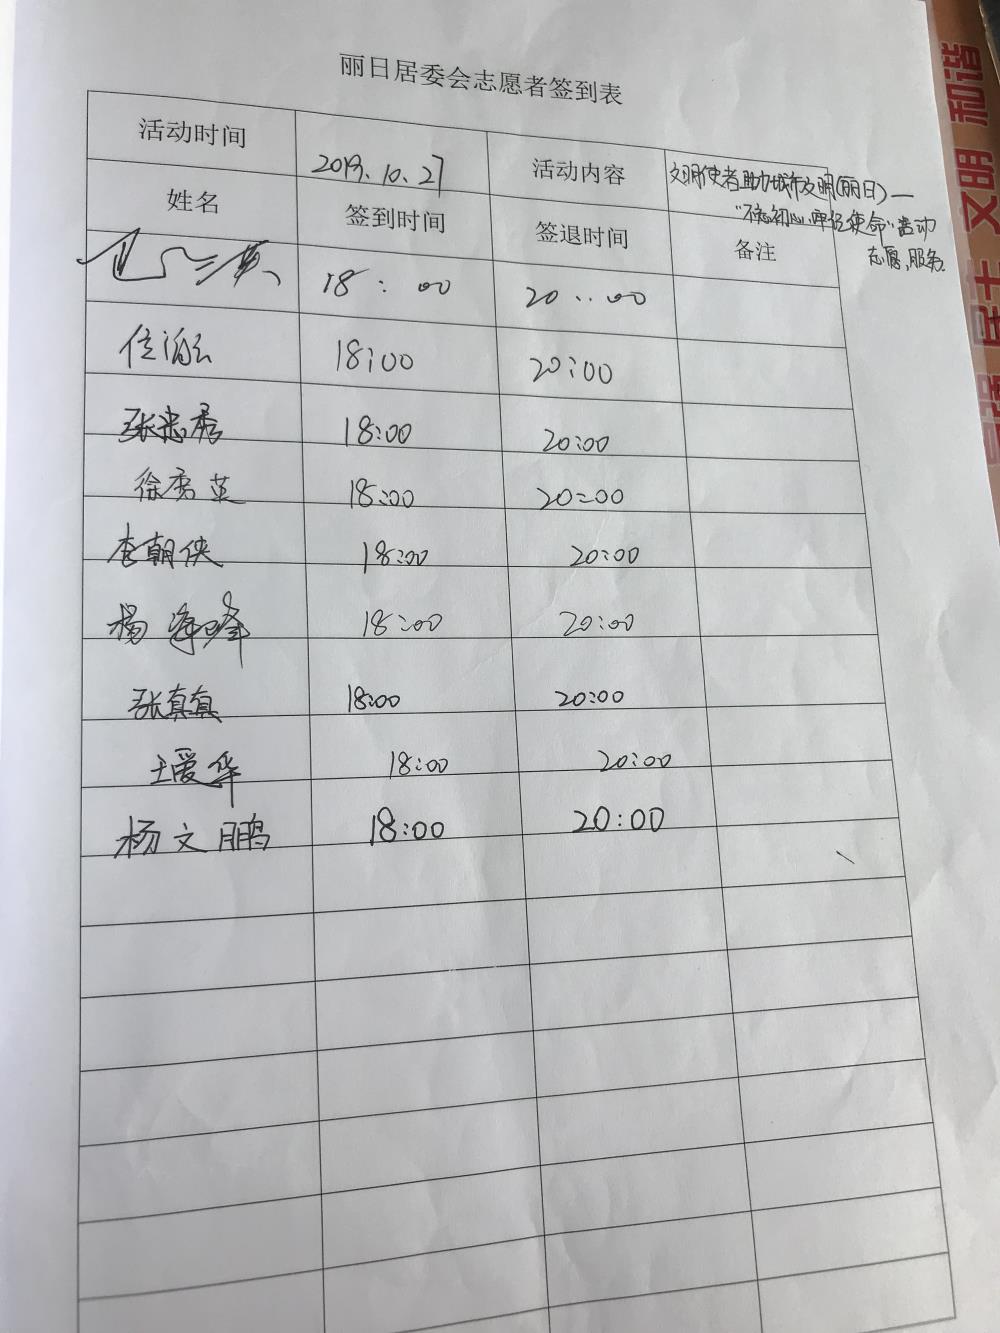 丽日居委会志愿者签到表
活动时间 2019.10.27 活动内容 文明使者助力城市文明(丽日)—
"不忘初心 牢记使命"活动
志愿服务.
姓名 签到时间 签退时间 备注
18:00 20:00
18:00 20:00
张忠秀 18:00 20:00
徐秀英 18:00 20:00
李朝侠 18:00 20:00
杨海峰 18:00 20:00
张真真 18:00 20:00
王爱华 18:00 20:00
杨文鹏 18:00 20:00
和谐
文明